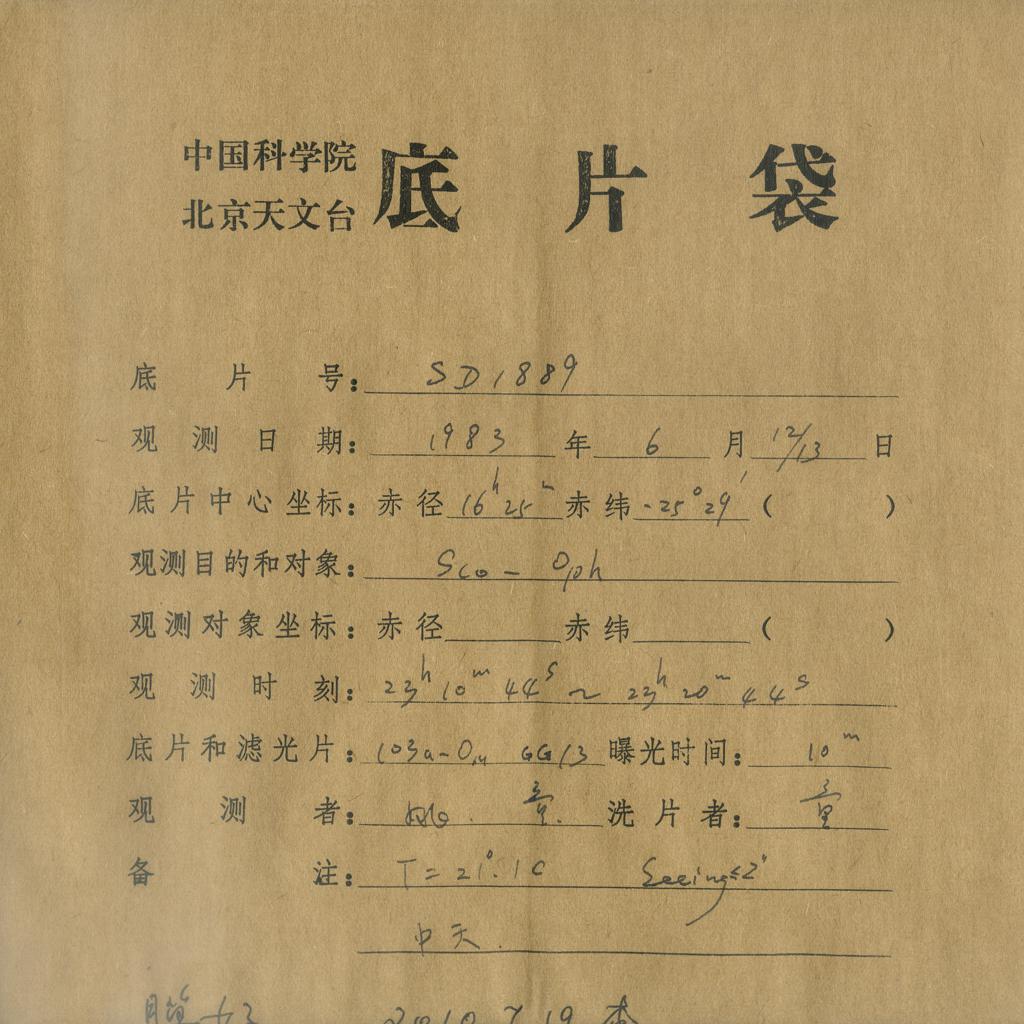 中国科学院
北京天文台
底片袋
底片号: SD1889
观测日期: 1983年6月12/13日
底片中心坐标: 赤径 16h25m 赤纬 -25°29′ ( )
观测目的和对象: Sco - Oph
观测对象坐标: 赤径 赤纬 ( )
观测时刻: 23h10m44s ~ 23h20m44s
底片和滤光片: 103a-O, GG13 曝光时间: 10m
观测者: 姚. 童. 洗片者: 童
备注: T = 21°.1C Seeing≤2"
中天.
2010 7 19 李